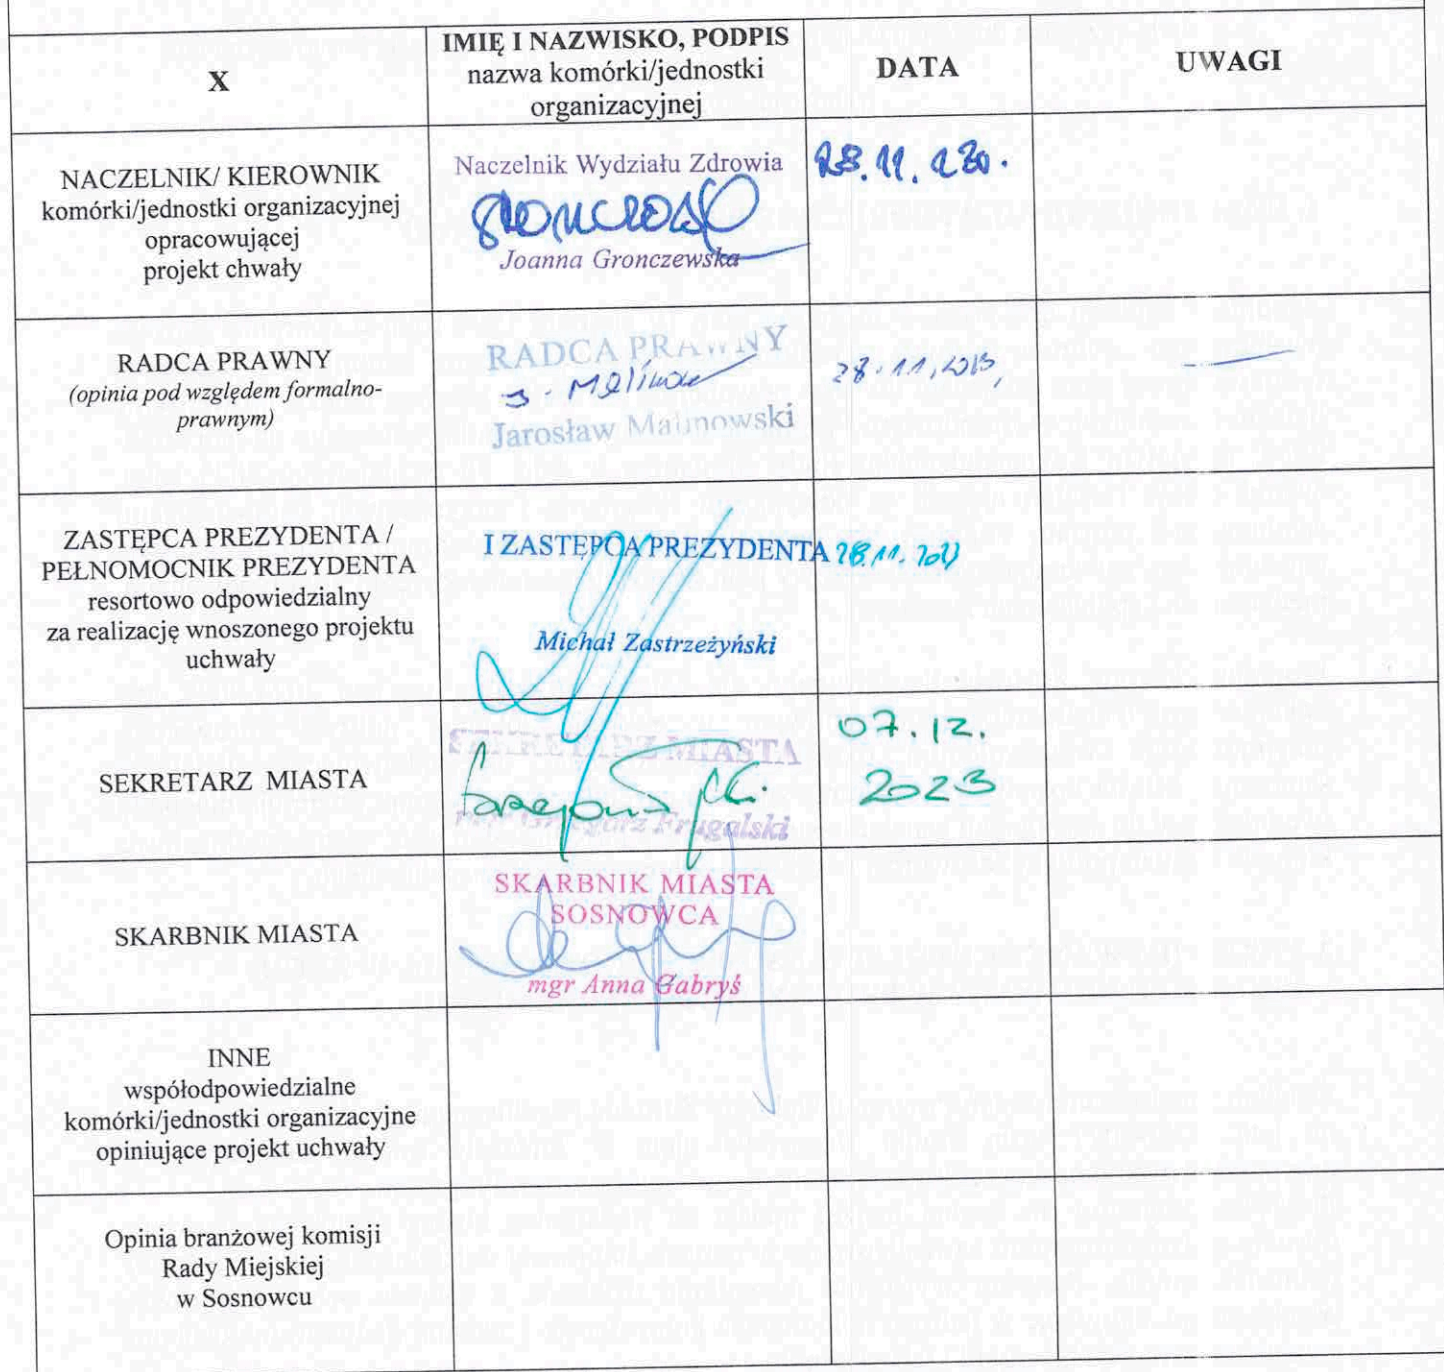 X
IMIĘ I NAZWISKO, PODPIS
nazwa komórki/jednostki
organizacyjnej
DATA
UWAGI
NACZELNIK/ KIEROWNIK
komórki/jednostki organizacyjnej
opracowującej
projekt chwały
Naczelnik Wydziału Zdrowia
Joanna Gronczewska
28.11.
RADCA PRAWNY
(opinia pod względem formalno-
prawnym)
RADCA PRAWNY
J. Malinow
Jarosław Malinowski
28.11.2023
ZASTĘPCA PREZYDENTA /
PEŁNOMOCNIK PREZYDENTA
resortowo odpowiedzialny
za realizację wnoszonego projektu
uchwały
I ZASTĘPCA PREZYDENTA
28.11.
Michał Zastrzeżyński
SEKRETARZ MIASTA
SEKRETARZ MIASTA
mgr Grzegorz Frugalski
07.12.
2023
SKARBNIK MIASTA
SKARBNIK MIASTA
SOSNOWCA
mgr Anna Gabryś
INNE
współodpowiedzialne
komórki/jednostki organizacyjne
opiniujące projekt uchwały
Opinia branżowej komisji
Rady Miejskiej
w Sosnowcu